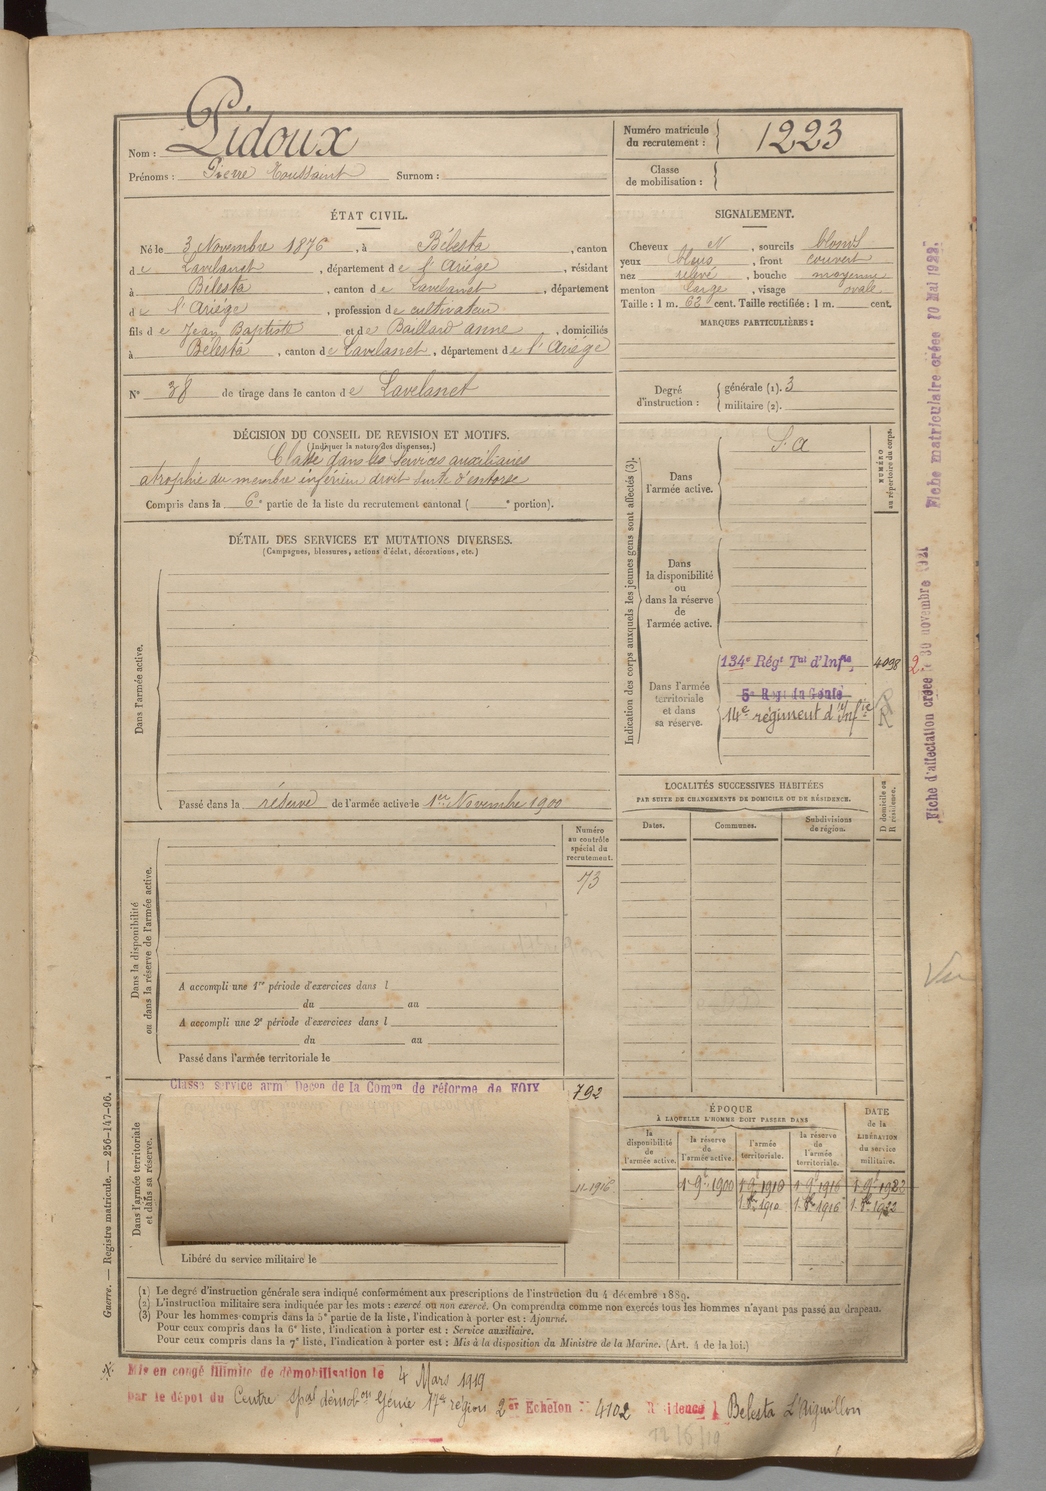 Nom : Pidoux
Prénoms : Pierre Toussaint Surnom :
Numéro matricule du recrutement : 1223
Classe de mobilisation :
ÉTAT CIVIL.
Né le 3 Novembre 1876, à Bélesta, canton
de Lavelanet, département de l'Ariége, résidant
à Bélesta, canton de Lavelanet, département
de l'Ariége, profession de cultivateur
fils de Jean Baptiste et de Baillard anne, domiciliés
à Bélesta, canton de Lavelanet, département de l'Ariége
N° 38 de tirage dans le canton de Lavelanet
SIGNALEMENT.
Cheveux N, sourcils blonds
yeux bleus, front couvert
nez relevé, bouche moyenne
menton large, visage ovale.
Taille : 1 m. 62 cent. Taille rectifiée : 1 m. cent.
MARQUES PARTICULIÈRES :
Degré d'instruction : générale (1). 3
militaire (2).
DÉCISION DU CONSEIL DE REVISION ET MOTIFS.
(Indiquer la nature des dispenses.)
Classé dans les Services auxiliaires
atrophie du membre inférieur droit suite d'entorse
Compris dans la 6e partie de la liste du recrutement cantonal ( e portion).
DÉTAIL DES SERVICES ET MUTATIONS DIVERSES.
(Campagnes, blessures, actions d'éclat, décorations, etc.)
Dans l'armée active.
Passé dans la réserve de l'armée active le 1er Novembre 1900
Indication des corps auxquels les jeunes gens sont affectés (3).
NUMÉRO au répertoire du corps.
Dans l'armée active.
S. a
Dans la disponibilité ou dans la réserve de l'armée active.
Dans l'armée territoriale et dans sa réserve.
134e Régt Tal d'Infie, 4098
5e Regt du Génie
14e régiment d'Infie
2.
LOCALITÉS SUCCESSIVES HABITÉES
PAR SUITE DE CHANGEMENTS DE DOMICILE OU DE RÉSIDENCE.
Dates. Communes. Subdivisions de région. D domicile ou R résidence.
Numéro au contrôle spécial du recrutement.
73
Dans la disponibilité ou dans la réserve de l'armée active.
A accompli une 1re période d'exercices dans l
du au
A accompli une 2e période d'exercices dans l
du au
Passé dans l'armée territoriale le
Classé service armé Décon de la Comon de réforme de FOIX
792
11-1916
Dans l'armée territoriale et dans sa réserve.
Libéré du service militaire le
ÉPOQUE
À LAQUELLE L'HOMME DOIT PASSER DANS
la disponibilité de l'armée active. la réserve de l'armée active. l'armée territoriale. la réserve de l'armée territoriale. DATE de la LIBÉRATION du service militaire.
1 9e 1900 1 9e 1910 1 9e 1916 1 9e 1922
1. 8e 1910 1. 8e 1916 1. 8e 1922
(1) Le degré d'instruction générale sera indiqué conformément aux prescriptions de l'instruction du 4 décembre 1889.
(2) L'instruction militaire sera indiquée par les mots : exercé ou non exercé. On comprendra comme non exercés tous les hommes n'ayant pas passé au drapeau.
(3) Pour les hommes compris dans la 5e partie de la liste, l'indication à porter est : Ajourné.
Pour ceux compris dans la 6e liste, l'indication à porter est : Service auxiliaire.
Pour ceux compris dans la 7e liste, l'indication à porter est : Mis à la disposition du Ministre de la Marine. (Art. 4 de la loi.)
Mis en congé illimité de démobilisation le 4 Mars 1919
par le dépôt du Centre Spal démobon Génie 17e région 2er Echelon N° 4102 Résidence à Belesta L'Aiguillon
12/6/19
Guerre. — Registre matricule. — 256-147-96. 1
Fiche matriculaire créée 10 Mai 1922.
Fiche d'affectation créée le 30 novembre 1921
Vu